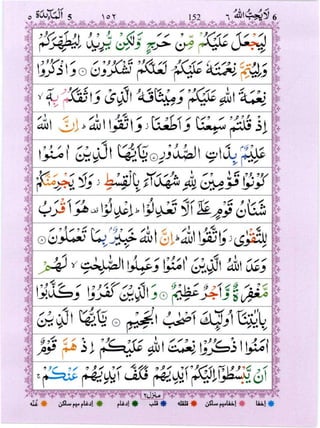 ٥ اَلْمَآئِدَة 5 ١٥٢ 152 ٦ لَا يُحِبُّ اللّٰهُ 6
لِيَجْعَلَ عَلَيْكُمْ مِّنْ حَرَجٍ وَّلٰكِنْ يُّرِيْدُ لِيُطَهِّرَكُمْ
وَلِيُتِمَّ نِعْمَتَهٗ عَلَيْكُمْ لَعَلَّكُمْ تَشْكُرُوْنَ ۝ وَاذْكُرُوْا
نِعْمَةَ اللّٰهِ عَلَيْكُمْ وَمِيْثَاقَهُ الَّذِىْ وَاثَقَكُمْ بِهٖۤ ۙ
اِذْ قُلْتُمْ سَمِعْنَا وَاَطَعْنَا ۫ وَاتَّقُوا اللّٰهَ ؕ اِنَّ اللّٰهَ
عَلِيْمٌۢ بِذَاتِ الصُّدُوْرِ ۝ يٰۤاَيُّهَا الَّذِيْنَ اٰمَنُوْا
كُوْنُوْا قَوّٰمِيْنَ لِلّٰهِ شُهَدَآءَ بِالْقِسْطِ ۫ وَلَا يَجْرِمَنَّكُمْ
شَنَاٰنُ قَوْمٍ عَلٰۤى اَلَّا تَعْدِلُوْا ؕ اِعْدِلُوْا ۫ هُوَ اَقْرَبُ
لِلتَّقْوٰى ۫ وَاتَّقُوا اللّٰهَ ؕ اِنَّ اللّٰهَ خَبِيْرٌۢ بِمَا تَعْمَلُوْنَ ۝
وَعَدَ اللّٰهُ الَّذِيْنَ اٰمَنُوْا وَعَمِلُوا الصّٰلِحٰتِ ۙ لَهُمْ
مَّغْفِرَةٌ وَّاَجْرٌ عَظِيْمٌ ۝ وَالَّذِيْنَ كَفَرُوْا وَكَذَّبُوْا
بِاٰيٰتِنَاۤ اُولٰٓئِكَ اَصْحٰبُ الْجَحِيْمِ ۝ يٰۤاَيُّهَا الَّذِيْنَ
اٰمَنُوا اذْكُرُوْا نِعْمَتَ اللّٰهِ عَلَيْكُمْ اِذْ هَمَّ قَوْمٌ
اَنْ يَّبْسُطُوْۤا اِلَيْكُمْ اَيْدِيَهُمْ فَكَفَّ اَيْدِيَهُمْ عَنْكُمْ ۚ
منزل ٢
إخفا إخفامیم ساکن قلقله قلب إدغام إدغام میم ساکن غنّه